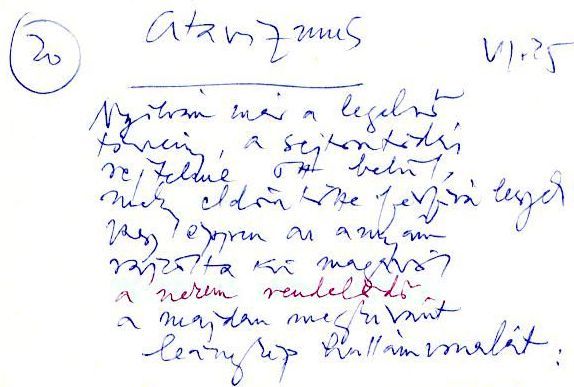 20
Atavizmus
VI. 25
Nyilván már a legelső
törvény, a sejtosztódás
rejtelme ott belül,
mely eldöntötte férfivá leszek
vagy éppen az anyám
rajzolta ki magából
a nemem rendelődő
a majdan megkívánt
leánykép hullámvonalát: